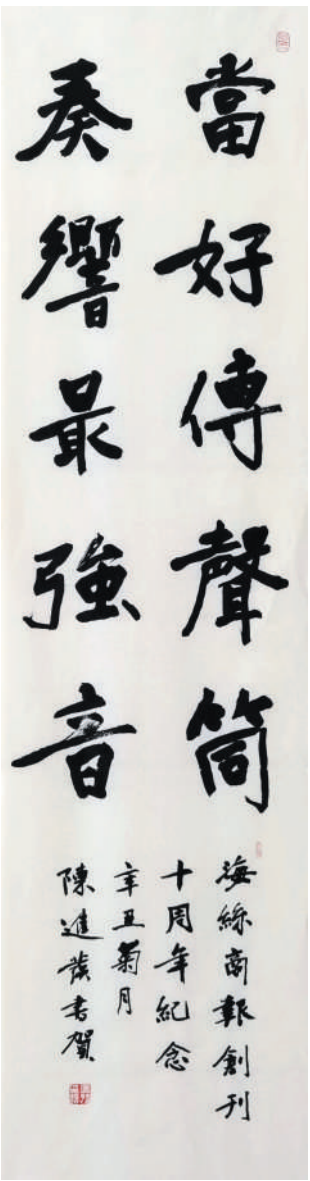 當好傳聲筒
奏響最強音
海絲商報創刊
十周年紀念
辛丑菊月
陳進發書賀